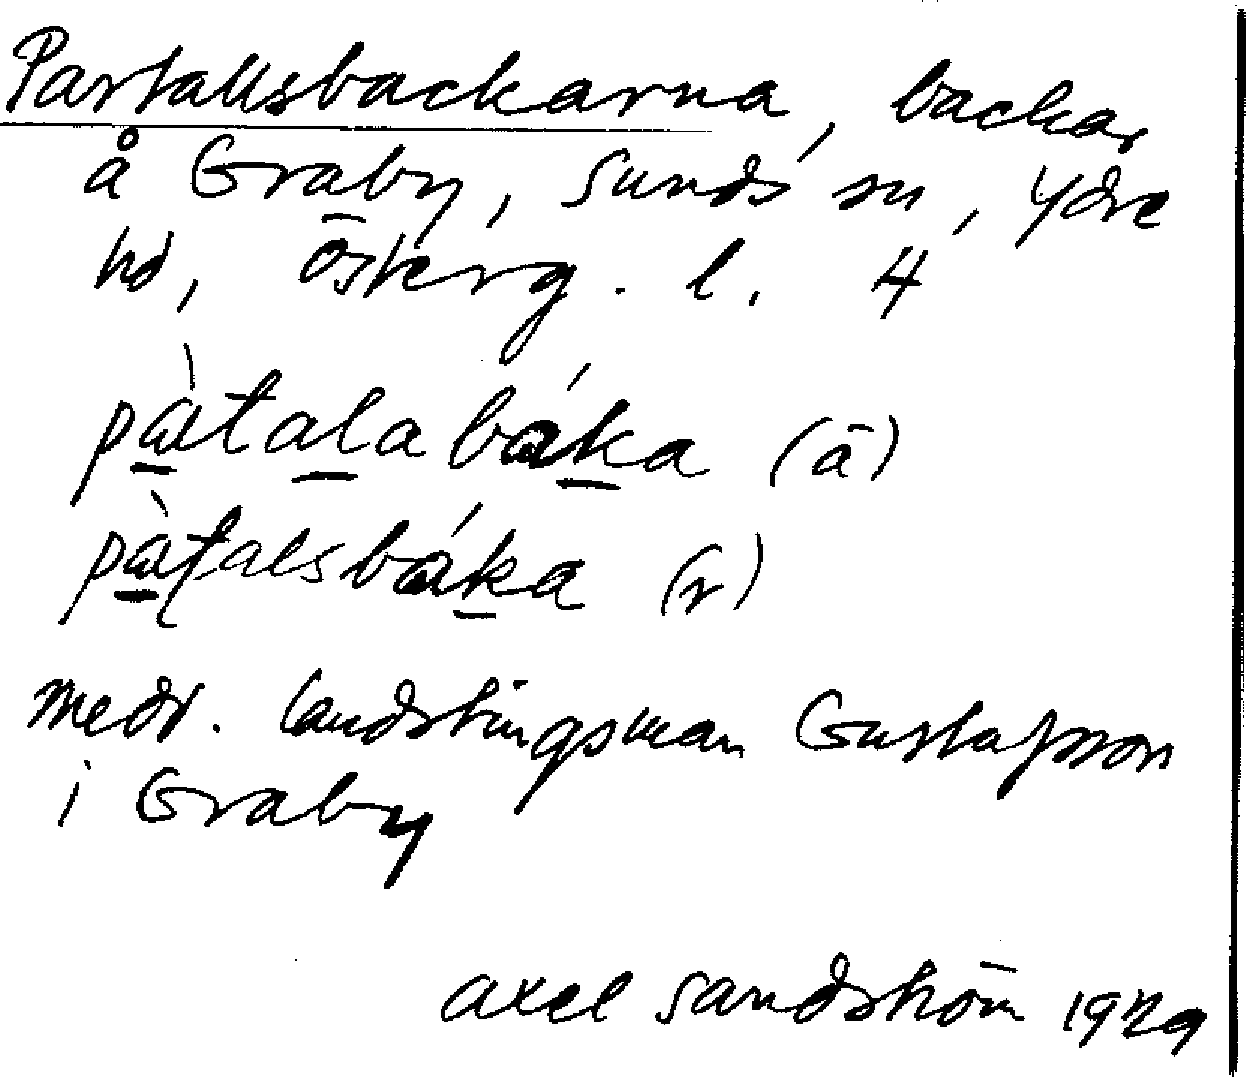 Partallsbackarna, backar
å Graby, Sunds sn, Ydre
hd, Österg. l. 4
pàtalabáka (ā)
pàtalsbáka (r)
Medd. landstingsman Gustafsson
i Graby
Axel Sandström 1929